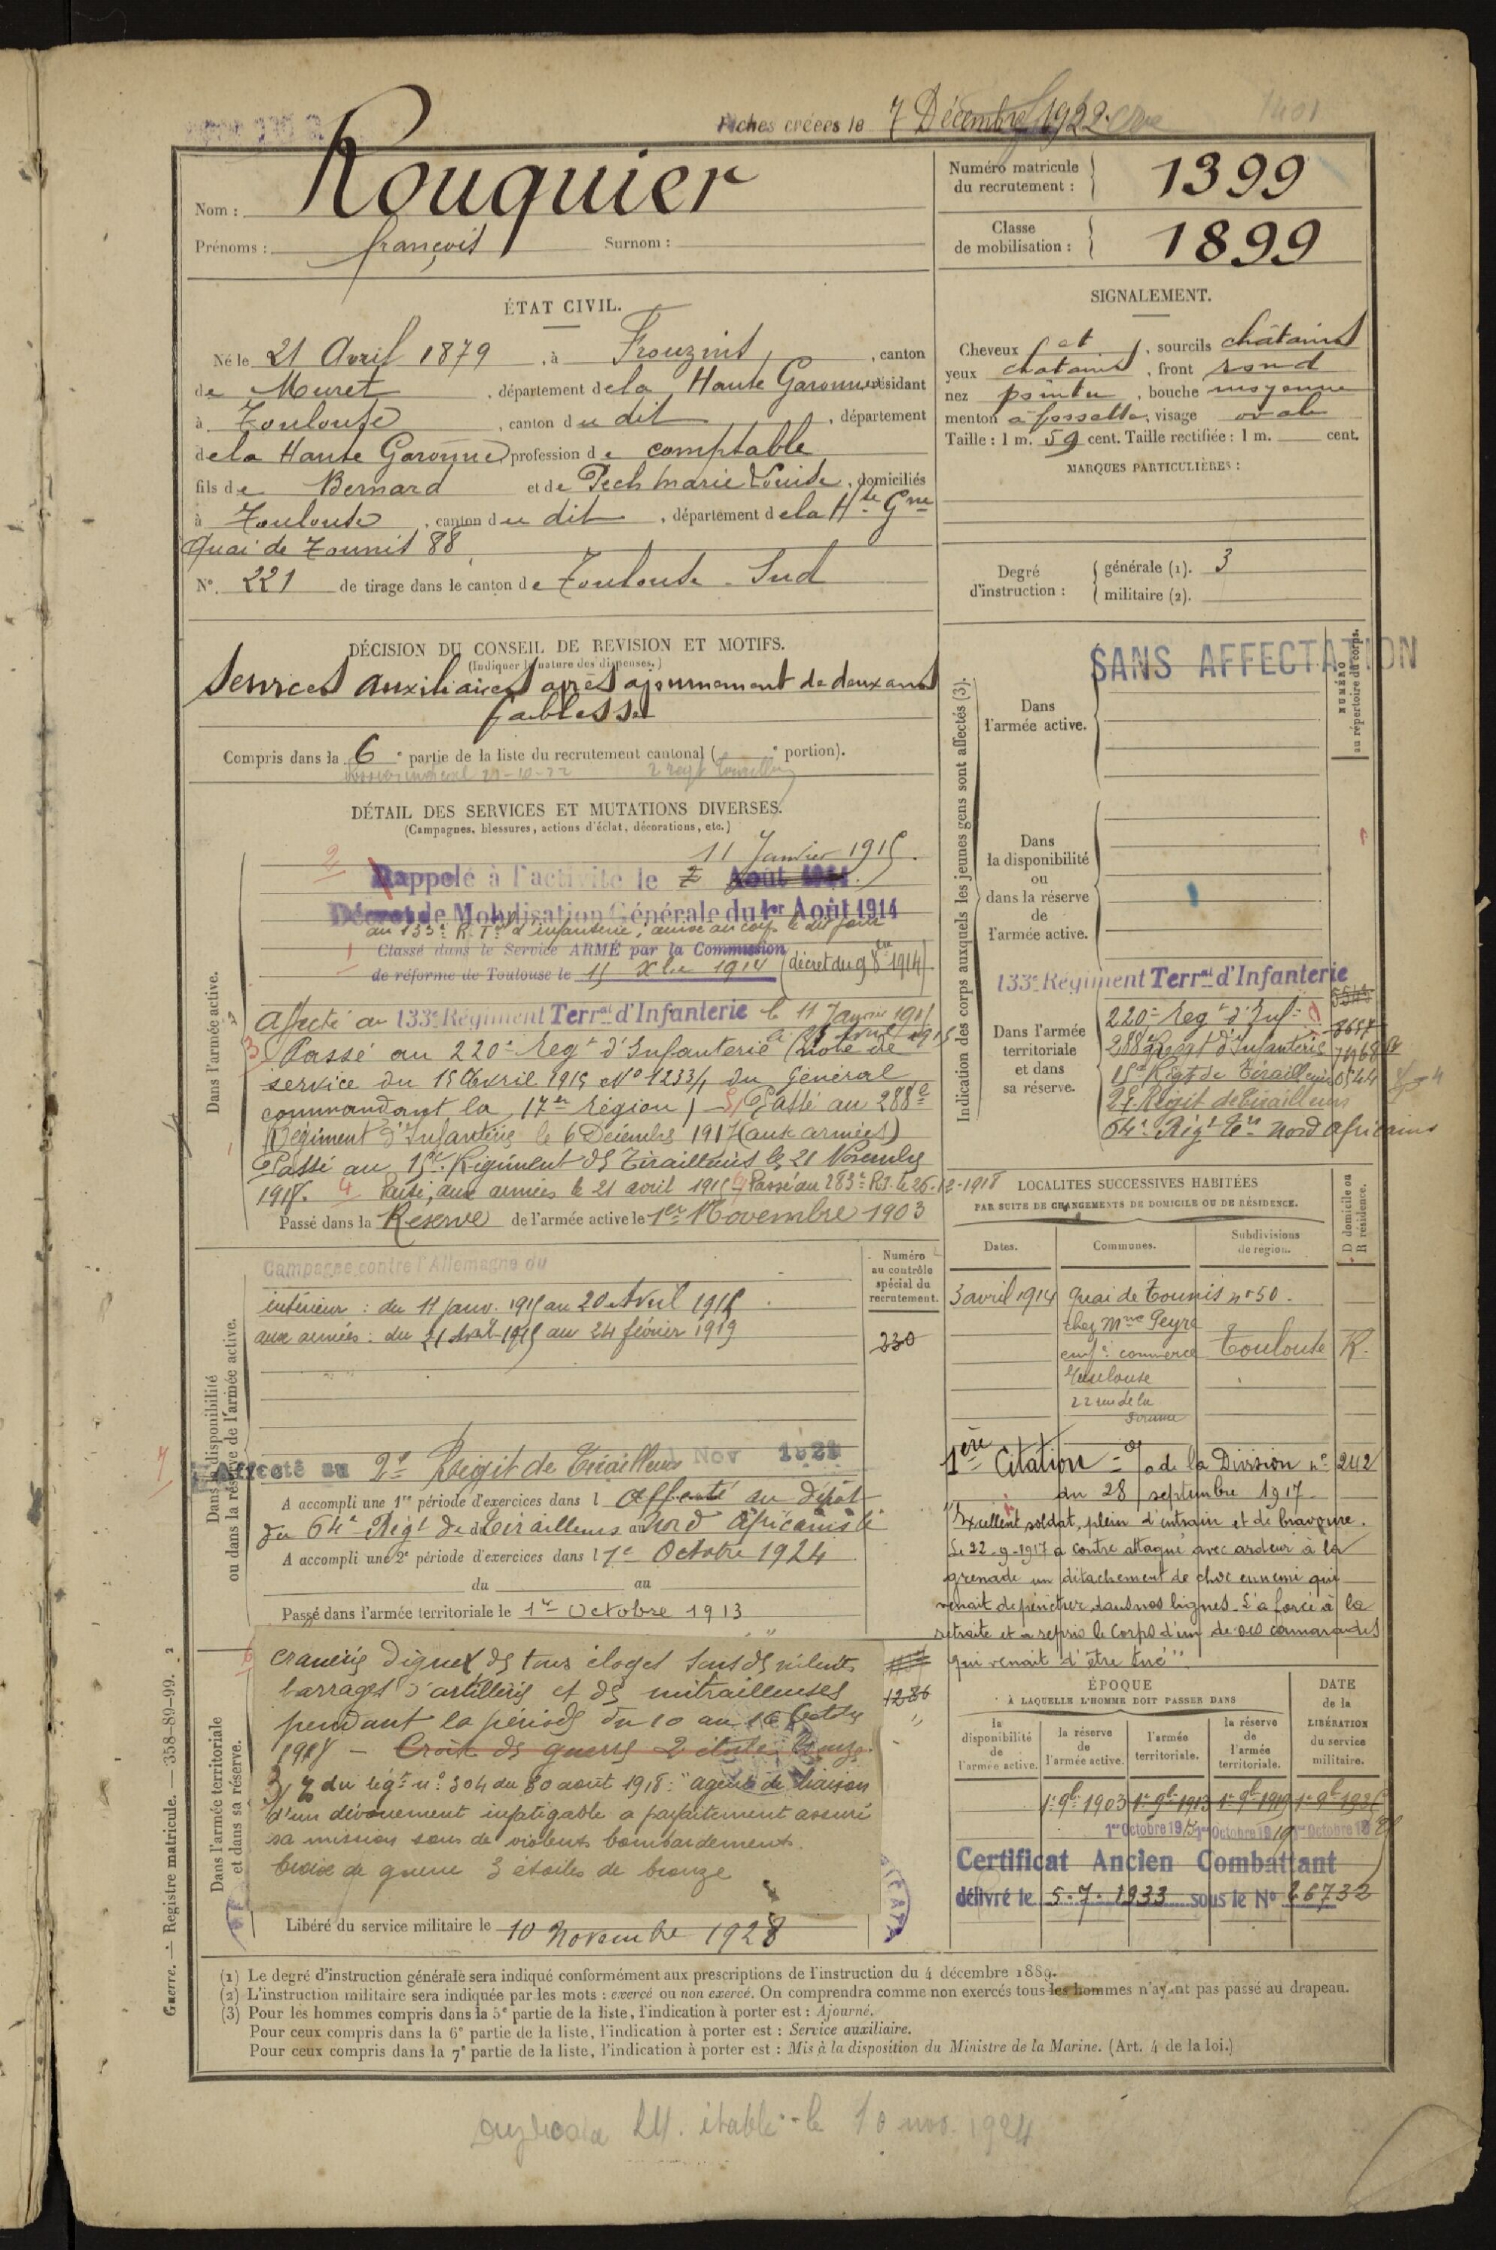 Fiches créées le 7 Décembre 1922
1401
Nom : Rouquier
Prénoms : françois Surnom :
Numéro matricule du recrutement : 1399
Classe de mobilisation : 1899
ÉTAT CIVIL.
Né le 21 Avril 1879, à Frouzins, canton
de Muret, département de la Haute Garonne résidant
à Toulouse, canton du dit, département
de la Haute Garonne profession de comptable
fils de Bernard et de Pech marie Louise, domiciliés
à Toulouse, canton du dit, département de la Hte Gne
Quai de Tounis 88
N° 221 de tirage dans le canton de Toulouse Sud
SIGNALEMENT.
Cheveux et, sourcils châtains
yeux chatains, front rond
nez pointu, bouche moyenne
menton à fossette, visage ovale
Taille : 1 m. 59 cent. Taille rectifiée : 1 m. cent.
MARQUES PARTICULIÈRES :
Degré d'instruction : générale (1). 3
militaire (2).
DÉCISION DU CONSEIL DE REVISION ET MOTIFS.
(Indiquer la nature des dispenses.)
Services auxiliaires après ajournement de deux ans
faiblesse
Compris dans la 6e partie de la liste du recrutement cantonal ( e portion).
DÉTAIL DES SERVICES ET MUTATIONS DIVERSES.
(Campagnes, blessures, actions d'éclat, décorations, etc.)
Dans l'armée active.
11 Janvier 1915.
2
Rappelé à l'activité le 2 Août 1914.
Décret de Mobilisation Générale du 1er Août 1914
au 133e R. Tal d'infanterie, arrivé au corps le dit jour
1 Classé dans le Service ARMÉ par la Commission
de réforme de Toulouse le 15 Xbre 1914 (décret du 9 8bre 1914)
Affecté au 133e Régiment Terral d'Infanterie le 11 Janvier 1915
3 Passé au 220e Regt d'Infanterie (note de
service du 15 Avril 1915 N° 1233/1 du Général
commandant la 17e région) – 5/ Passé au 288e
Régiment d'Infanterie le 6 Décembre 1917 (aux armées)
Passé au 15e Régiment de Tirailleurs le 21 Novembre
1918. 4 Parti aux armées le 21 avril 1915 Passé au 283e R.I. le 26-12-1918
Passé dans la Réserve de l'armée active le 1er Novembre 1903
Indication des corps auxquels les jeunes gens sont affectés (3).
SANS AFFECTATION
NUMÉRO au répertoire du corps.
Dans l'armée active.
Dans la disponibilité ou dans la réserve de l'armée active.
133e Régiment Terral d'Infanterie
Dans l'armée territoriale et dans sa réserve.
220e Regt d'Inf
288e Regt d'Infanterie
15e Régt de Tirailleurs
2e Régit de Tirailleurs
64e Régt Tirs nord africains
Dans la disponibilité ou dans la réserve de l'armée active.
Campagne contre l'Allemagne du
intérieur : du 11 janv. 1915 au 20 Avril 1915
aux armées : du 21 Avril 1915 au 24 février 1919
Numéro au contrôle spécial du recrutement.
230
Affecté au 2e Régit de Tirailleurs Nov 1921
A accompli une 1re période d'exercices dans l affecté au dépôt
du 64e Régt de Tirailleurs Nord Africains le
A accompli une 2e période d'exercices dans l 1e Octobre 1924
du au
Passé dans l'armée territoriale le 1er Octobre 1913
LOCALITÉS SUCCESSIVES HABITÉES
PAR SUITE DE CHANGEMENTS DE DOMICILE OU DE RÉSIDENCE.
Dates. Communes. Subdivisions de région. D domicile ou R résidence.
3 avril 1914 quai de Tounis n° 50.
chez Mme Peyre
emp. commerce Toulouse R.
Toulouse
22 rue de la
1ère Citation = O/ de la Division n° 242
du 28 septembre 1917
"Excellent soldat, plein d'entrain et de bravoure.
Le 22-9-1917 a contre attaqué avec ardeur à la
grenade un détachement de choc ennemi qui
venait de pénétrer dans nos lignes. L'a forcé à la
retraite et a repris le corps d'un de ses camarades
qui venait d'être tué".
Dans l'armée territoriale et dans sa réserve.
6
cranerie dignes de tous éloges sous de violents
barrages d'artillerie et de mitrailleuses
pendant la période du 10 au 16
1918 – Croix de guerre 2 étoiles bronze.
3/ O/ du régt n° 304 du 30 août 1918 : "agent de liaison
d'un dévouement infatigable a parfaitement assuré
sa mission sous de violents bombardements.
Croix de guerre 3 étoiles de bronze
1286
Libéré du service militaire le 10 Novembre 1928
ÉPOQUE
À LAQUELLE L'HOMME DOIT PASSER DANS
la disponibilité de l'armée active.
la réserve de l'armée active.
l'armée territoriale.
la réserve de l'armée territoriale.
DATE de la LIBÉRATION du service militaire.
1er 9bre 1903 1er 9bre 1913 1er 9bre 1919 1er 9bre 192
1er Octobre 1913 1er Octobre 1919 1er Octobre 19
Certificat Ancien Combattant
délivré le 5-7-1933 sous le N° 26732
(1) Le degré d'instruction générale sera indiqué conformément aux prescriptions de l'instruction du 4 décembre 1889.
(2) L'instruction militaire sera indiquée par les mots : exercé ou non exercé. On comprendra comme non exercés tous les hommes n'ayant pas passé au drapeau.
(3) Pour les hommes compris dans la 5e partie de la liste, l'indication à porter est : Ajourné.
Pour ceux compris dans la 6e partie de la liste, l'indication à porter est : Service auxiliaire.
Pour ceux compris dans la 7e partie de la liste, l'indication à porter est : Mis à la disposition du Ministre de la Marine. (Art. 4 de la loi.)
Guerre. — Registre matricule. — 358-89-99.
duplicata LM. établi le 10 nov. 1924